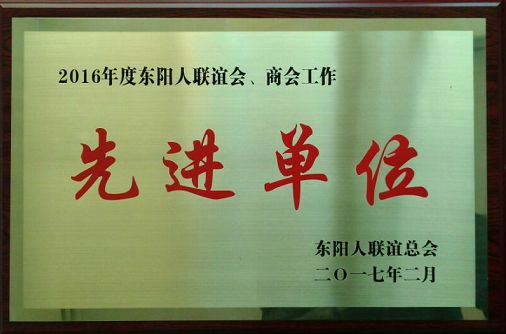 2016年度东阳人联谊会、商会工作
先进单位
东阳人联谊总会
二〇一七年二月